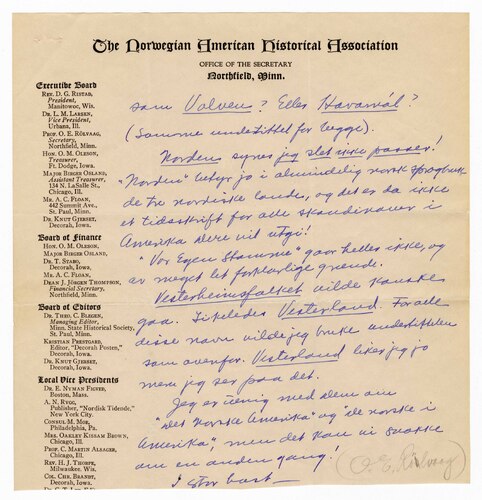 The Norwegian American Historical Association
OFFICE OF THE SECRETARY
Northfield, Minn.
Executive Board
REV. D. G. RISTAD,
President,
Manitowoc, Wis.
DR. L. M. LARSEN,
Vice President,
Urbana, Ill.
PROF. O. E. RÖLVAAG,
Secretary,
Northfield, Minn.
HON. O. M. OLESON,
Treasurer,
Ft. Dodge, Iowa.
MAJOR BIRGER OSLAND,
Assistant Treasurer,
134 N. LaSalle St.,
Chicago, Ill.
MR. A. C. FLOAN,
442 Summit Ave.,
St. Paul, Minn.
DR. KNUT GJERSET,
Decorah, Iowa.
Board of Finance
HON. O. M. OLESON,
MAJOR BIRGER OSLAND,
DR. T. STABO,
Decorah, Iowa.
MR. A. C. FLOAN,
DEAN J. JÖRGEN THOMPSON,
Financial Secretary,
Northfield, Minn.
Board of Editors
DR. THEO. C. BLEGEN,
Managing Editor,
Minn. State Historical Society,
St. Paul, Minn.
KRISTIAN PRESTGARD,
Editor, "Decorah Posten,"
Decorah, Iowa.
DR. KNUT GJERSET,
Decorah, Iowa.
Local Vice Presidents
DR. E. NYMAN FIGVED,
Boston, Mass.
A. N. RYGG,
Publisher, "Nordisk Tidende,"
New York City.
CONSUL M. MOE,
Philadelphia, Pa.
MRS. OAKLEY KISSAM BROWN,
Chicago, Ill.
PROF. C. MARTIN ALSAGER,
Chicago, Ill.
REV. H. J. THORPE,
Milwaukee, Wis.
COL. CHR. BRANDT,
Decorah, Iowa.
som Volven? Eller Havamál?
(Samme undertittel for begge).
Norden synes jeg slet ikke passer!
"Norden" betyr jo i almindelig norsk sprogbruk
de tre nordiske lande, og det er da ikke
et tidsskrift for alle skandinaver i
Amerika dere vil utgi!
"Vor Egen Stamme" gaar heller ikke, og
av meget let forklarlige grunde.
Vesterheimsfolket vilde kanske
gaa. Likeledes Vesterland. For alle
disse navn vilde jeg bruke undertittelen
som ovenfor. Vesterland liker jeg jo
mere jeg ser paa det.
Jeg er uenig med dem om
"det norske Amerika" og "de norske i
Amerika", men det kan vi snakke
om en anden gang!
I stor hast —
O. E. Rölvaag